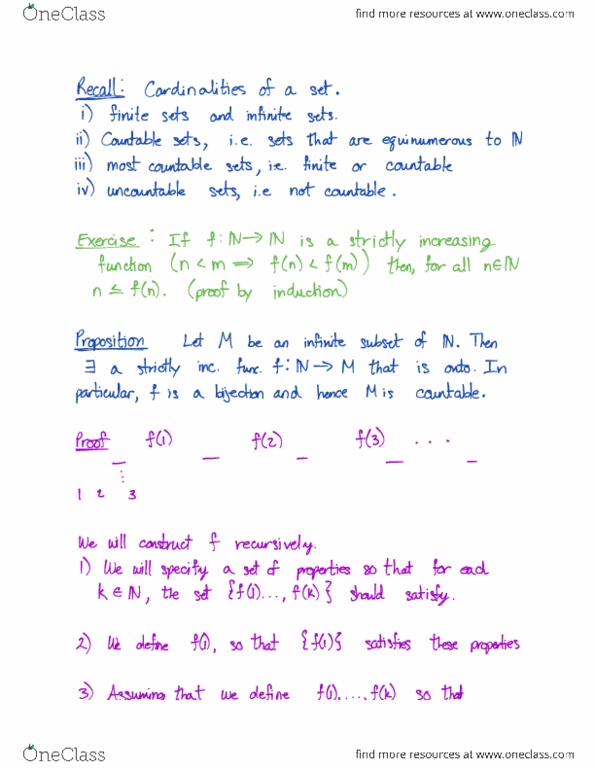 OneClass find more resources at www.oneclass.com
Recall: Cardinalities of a set.
i) finite sets and infinite sets.
ii) Countable sets, i.e. sets that are equinumerous to ℕ
iii) most countable sets, i.e. finite or countable
iv) uncountable sets, i.e not countable.
Exercise: If f: ℕ→ℕ is a strictly increasing
function (n < m ⟹ f(n) < f(m)) then, for all n∈ℕ
n ≤ f(n). (proof by induction)
Proposition Let M be an infinite subset of ℕ. Then
∃ a strictly inc. func. f: ℕ→ M that is onto. In
particular, f is a bijection and hence M is countable.
Proof f(1) f(2) f(3) ...
1 2 3
We will construct f recursively.
1) We will specify a set of properties so that for each
k ∈ ℕ, the set {f(1)..., f(k)} should satisfy.
2) We define f(1), so that {f(1)} satisfies these properties
3) Assuming that we define f(1),...,f(k) so that
OneClass find more resources at www.oneclass.com